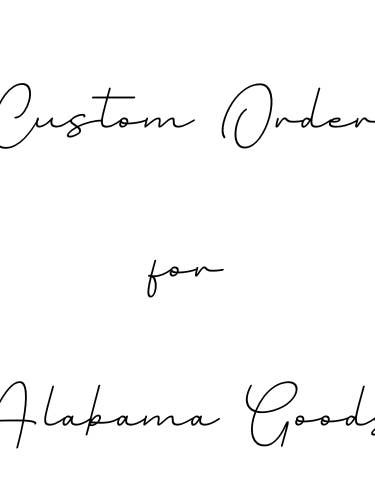 Custom Order
for
Alabama Goods